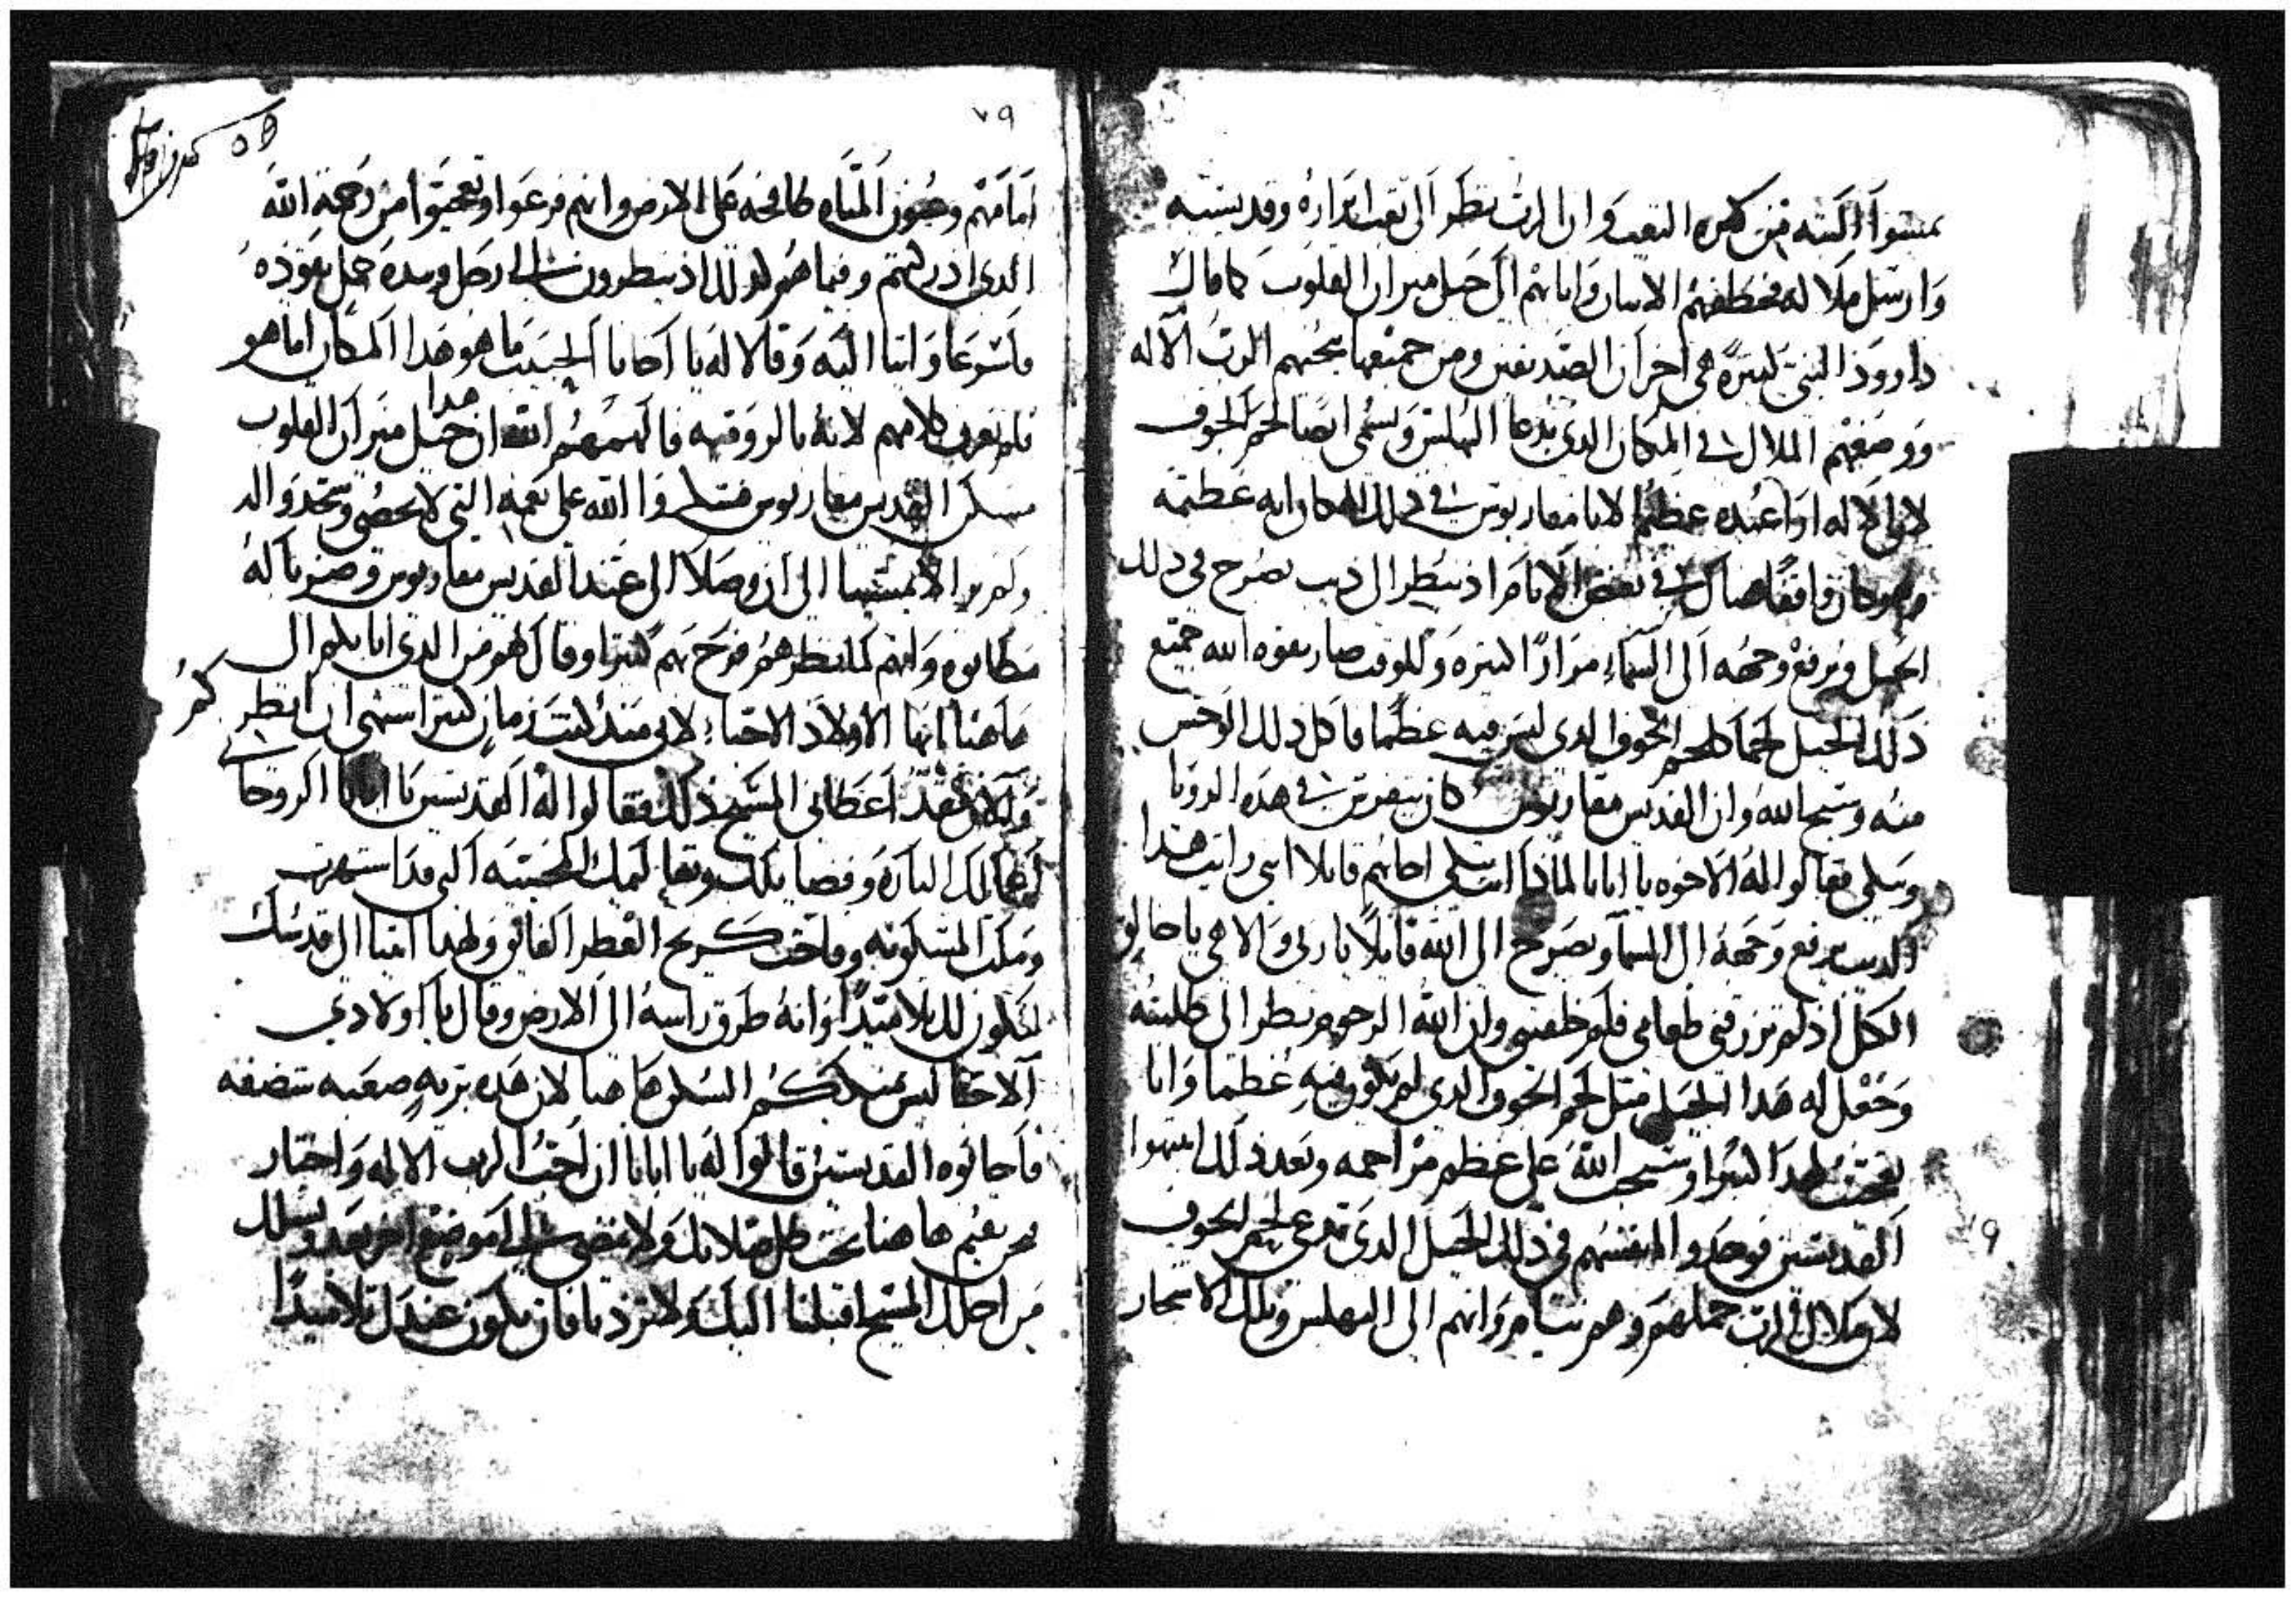 يمشوا البته من كثره التعب وان الرب نظر الى تعب ابراره وقديسيه
وارسل ملاله فخطفهم الاتنان واتا بهم الى جبل ميران القلوب كما قال
داوود النبي كثيرة هي احزان الصديقين ومن جميعها ينجيهم الرب الاله
ووضعهم الملاك في المكان الذي يدعا البهلس ويسمى ايضا لحم الجوف
لان الاله اوا عبده عظيما لانبا مقاريوس في ذلك المكان ايه عظيمه
وهو كان واقفا يصلي في بعض الايام اذ ينظر الى ديب يصرخ في ذلك
الجبل ويرفع وجهه الى السماء مرارًا كثيره وللوقت صار بقوه الله جميع
ذلك الجبل لحما كلحم الجوف الدي ليس فيه عظما فاكل ذلك الوحش
منه وسبح الله وان القديس مقاريوس كان يتفرس في هذه الرويا
وبكى فقالوا له الاخوه يا ابانا لماذا انت تبكي اجابهم قايلا اني رايت هذا
الديب يرفع وجهه الى السما ويصرخ الى الله قايلًا يا ربي والاهي يا خالق
الكل اذ لم ترزقني طعامي فلم خلقتني وان الله الرحوم نظر الى طلبته
وجعل له هذا الجبل مثل لحم الجوف الدي لم يكون فيه عظما وانا
تعجبت لهدا كثيرا وسبحت الله على عظم مراحمه وبعد ذلك انتبهوا
القديسين فوجدوا انفسهم في ذلك الجبل الدي تدعى لحم الجوف
لان ملاك الرب حملهم وهم نيام وانهم الى البهلس وتلك الاشجار
٧٩
٧٩
امامهم وعيون المياه طافحه على الارض وانهم فرعوا وتعجبوا من رحمة الله
الدي ادركتهم وفيما هم كذلك اذ ينظرون الى رجل وبيده حبل يقوده
فاسرعا واتيا اليه وقالا له يا اخانا الحبيب ما هو هدا المكان اما هو
فلم يعرف كلامهم لانه بالروميه فالهمهم الله ان هدا جبل ميزان القلوب
مسكن القديس مقاريوس فشكروا الله على نعمه التي لا تحصى وتجدوا لله
ولم يزالا يمشيا الى ان وصلا الى عند القديس مقاريوس وضربا له
مطانوه وانه لما نظرهم فرح بهم كثيرا وقال لهم من الدي اتا بكم الى
هاهنا ايها الاولاد الاحبا لاني منذ زمان كثير اشتهي ان انظركم
والان فقد اعطاني المسيح ذلك فقالوا له القديسين يا ابانا الروحاني
اعمالك الباره وفضايلك وتعاليمك الحسنه التي قد اشتهرت
وملت المسكونه وفاحت كريح العطر الفايق ولهدا اتينا الى قدسك
لنكون لك تلاميدًا وانه طرق راسه الى الارض وقال يا اولادي
الاحبا ليس يمكنكم السكن ها هنا لان هذه بريه صعبه متضفه
فاجابوه القديسين قالوا له يا ابانا ان احب الرب الاله واختار
نحن نقيم ها هنا تحت ظل صلاتك ولا نمضي الى موضع اخر بعد ونسلك
من اجلك المسيح اقبلنا اليك ولا تردنا فان نكون عندك تلاميدًا